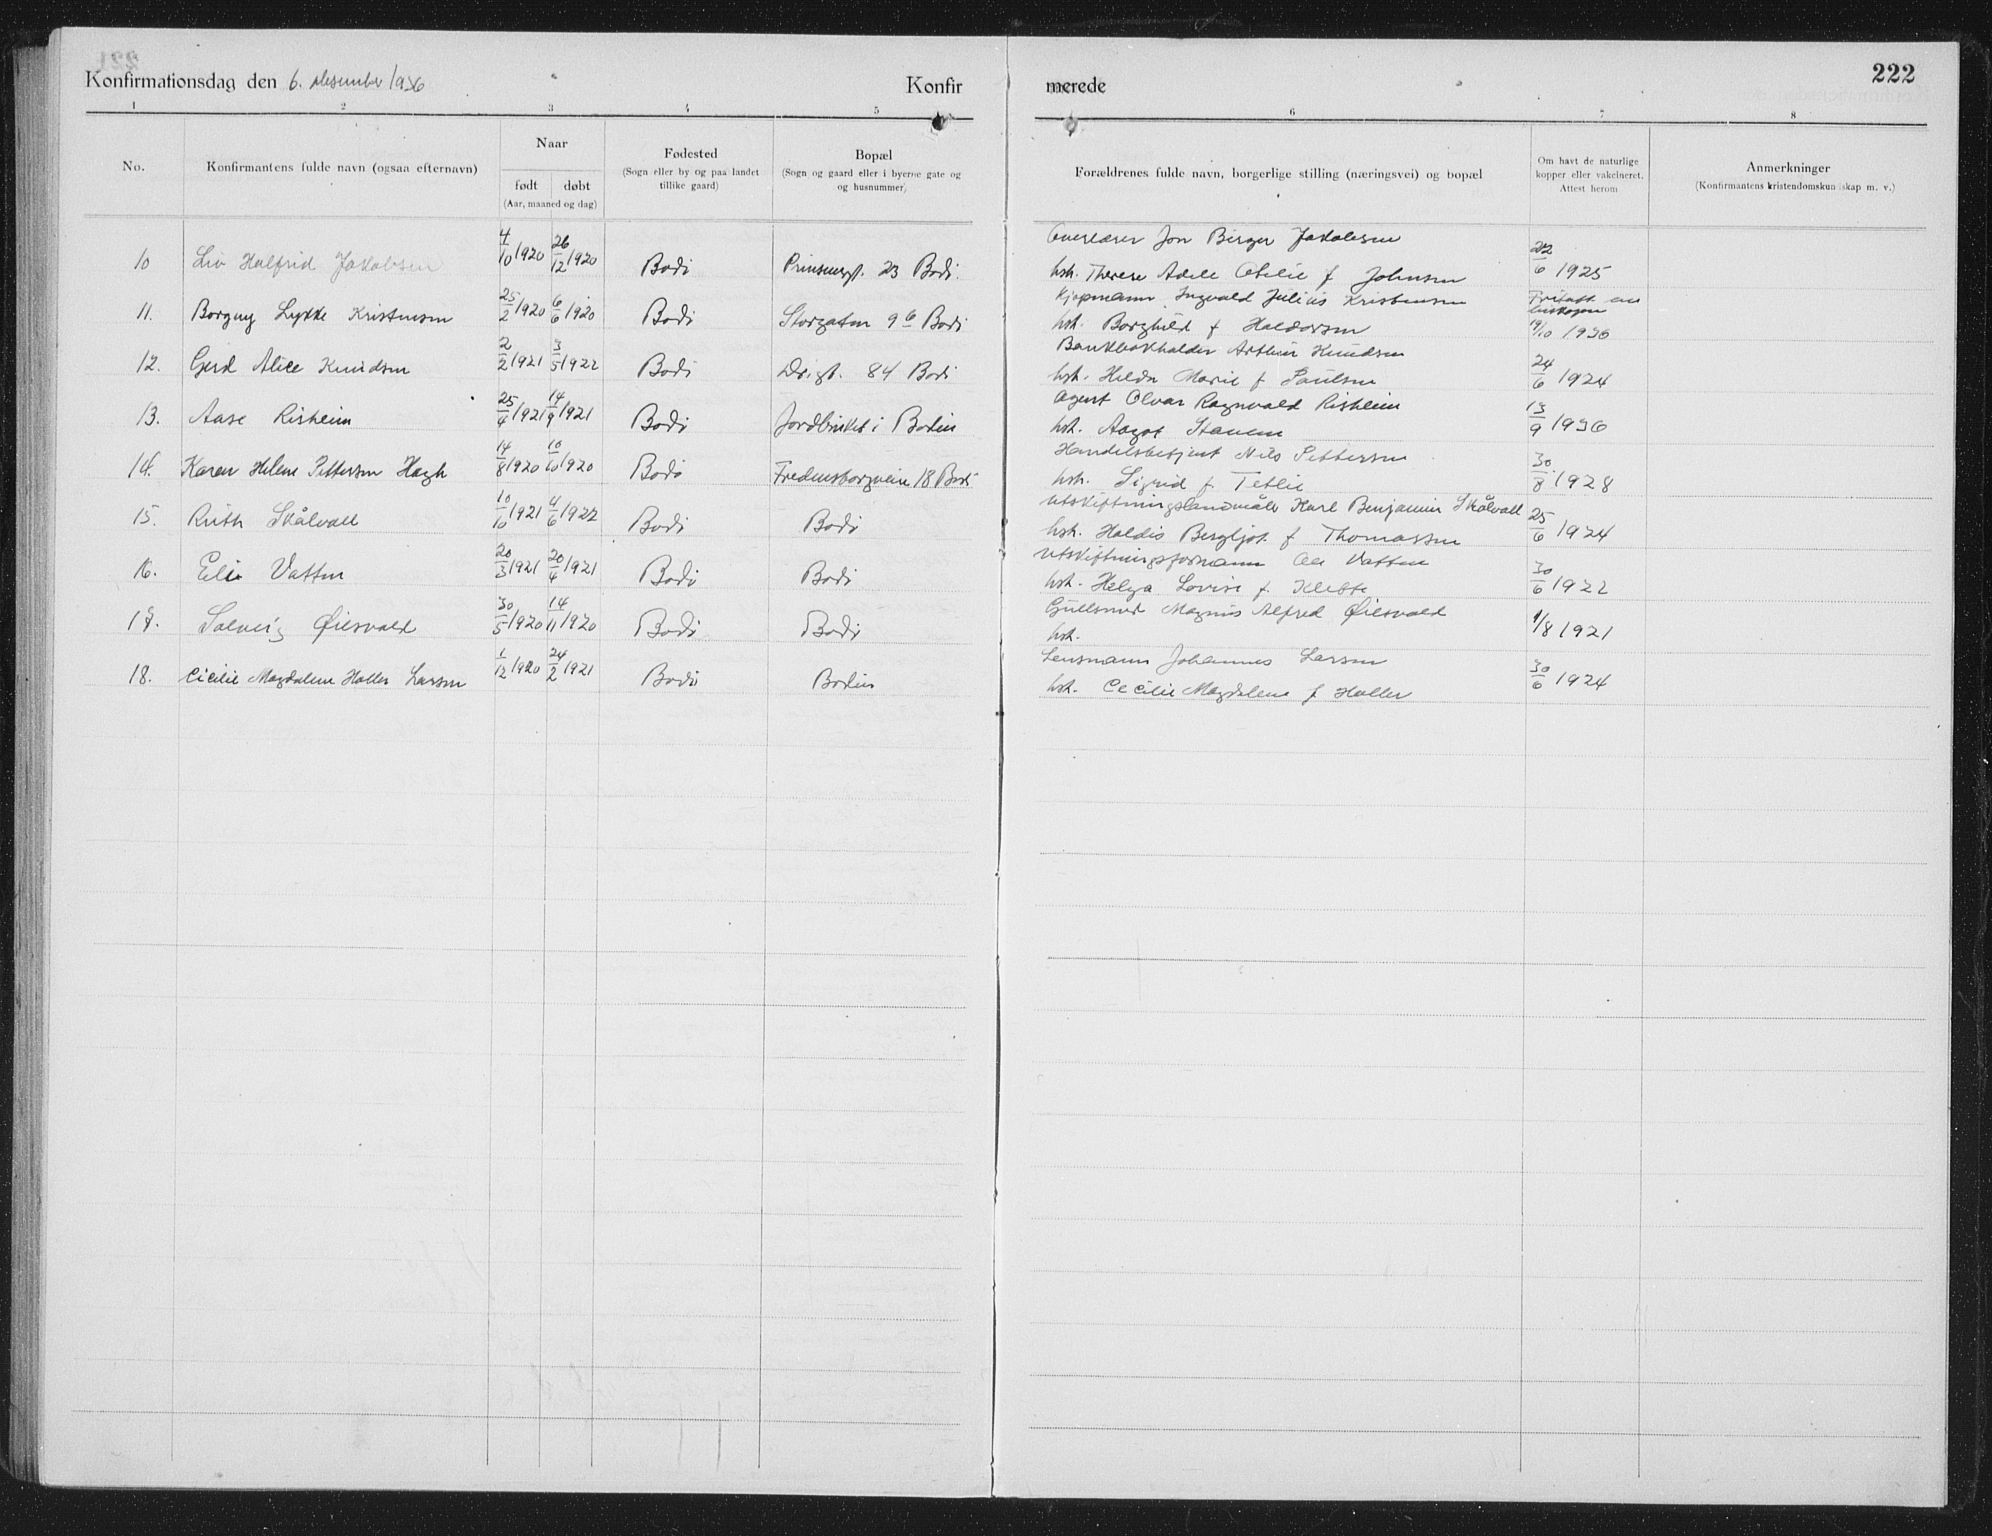 Konfirmationsdag den 6. desember 1936 Konfir merede 222
1 2 3 4 5 6 7 8
No. Konfirmantens fulde navn (ogsaa efternavn) Naar født døbt (Aar, maaned og dag) Fødested (Sogn eller by og paa landet tillike gaard) Bopæl (Sogn og gaard eller i byerne gate og og husnummer) Forældrenes fulde navn, borgerlige stilling (næringsvei) og bopæl Om havt de naturlige kopper eller vakcineret. Attest herom Anmerkninger (Konfirmantens kristendomskundskap m. v.)
Overlærer Jon Birger Jakobsen
10 Liv Halfrid Jakobsen 4/10 1920 26/12 1920 Bodø Prinsensgt. 23 Bodø. hst. Therese Adele Otelie f Johnsen 22/6 1925
Kjøpmann Ingvald Julius Kristensen Fritatt
11. Borgny Lykke Kristensen 25/2 1920 6/6 1920 Bodø Storgaten 9 b Bodø hst. Borghild f Haldorsen 19/10 1936
Bankbokholder Arthur Knudsen
12. Gerd Alice Knudsen 2/2 1921 3/5 1922 Bodø Drngt. 84 Bodø hst. Hilda Marie f Paulsen 24/6 1924
Agent Olvar Ragnvald Risheim
13. Aase Risheim 25/4 1921 14/9 1921 Bodø Jordbruket i Bodin hst. Aagot Stavem 13/9 1936
Handelsbetjent Nils Pettersen
14. Karen Helene Pettersen Hagh 14/8 1920 10/10 1920 Bodø Fredensborgveien 18 Bodø hst. Sigrid f. Tetlie 30/8 1928
Utskiftningslandmåler Karl Benjamin Skålvoll
15. Ruth Skålvoll 10/10 1921 4/6 1922 Bodø Bodø hst. Haldis Bergljot f Thomassen 25/6 1924
Utskiftningsformann Ole Vatten
16. Eli Vatten 20/3 1921 20/4 1921 Bodø Bodø hst. Helga Lovise f. Klette 30/6 1922
Gullsmed Magnus Alfred Øiesvold
17. Solveig Øiesvold 30/5 1920 14/11 1920 Bodø Bodø hst. 1/8 1921
Lensmann Johannes Larsen
18. Cicilie Magdalene Haller Larsen 1/12 1920 24/2 1921 Bodø Bodin hst. Cecilie Magdalene f Haller 30/6 1924